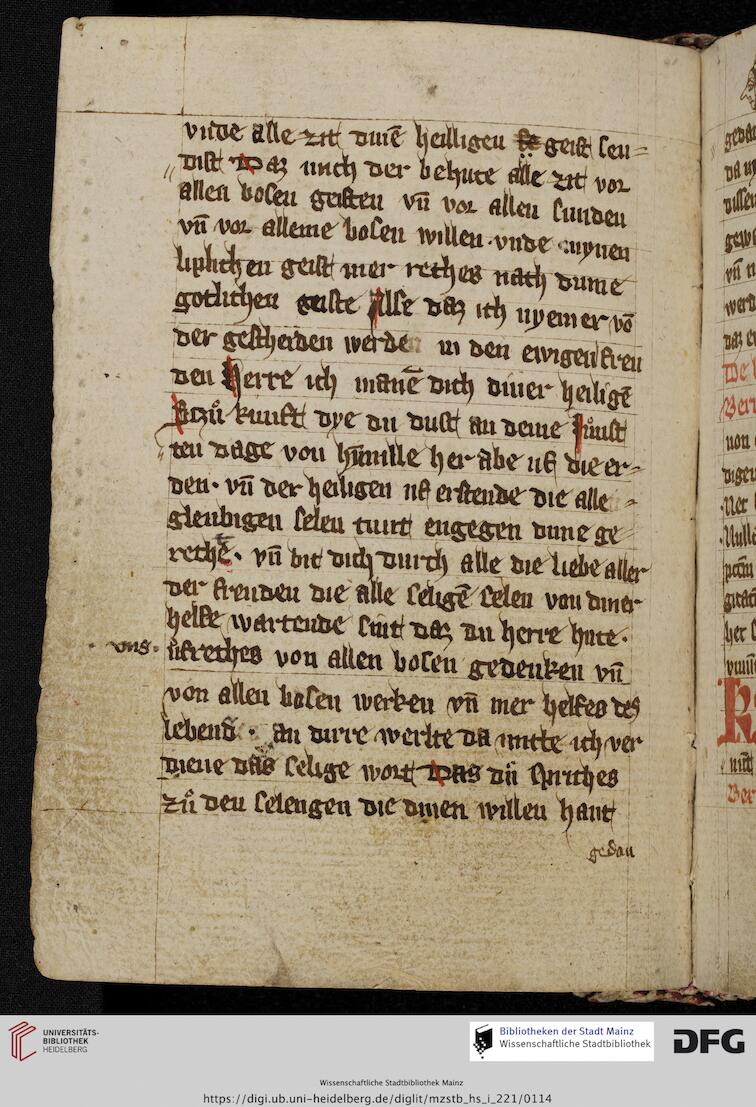 vnde alle zit dinē heiligen geist sen=
dist Daz mich der behute alle zit vor
allen bosen geisten vn̄ vor allen sunden
vn̄ vor alleme bosen willen · vnde mynen
liplichen geist mer reches nach dinme
gotlichen geiste Alse daz ich nyemer vō
der gescheiden werde in den ewigen freu
den Herre ich manē dich diner heiligē
zůkunft dye du dust an deme Junst
ten dage von hīmille her abe uf die er=
den · vn̄ der heiligen uf erstende die alle
gleubigen selen tunt engegen dime ge
rechē · vn̄ bit dich durch alle die liebe aller
der freuden die alle seligē selen von diner
helfe wartende sint daz du herre hute ·
· vns ·
ůfreches von allen bosen gedenken vn̄
von allen bosen werken vn̄ mer helfes des
lebens · an dirre werlte da mitte ich ver
diene das selige wort Das dů spriches
zů den selengen die dinen willen hant
gedan
UNIVERSITÄTS-
BIBLIOTHEK
HEIDELBERG
Bibliotheken der Stadt Mainz
Wissenschaftliche Stadtbibliothek
DFG
Wissenschaftliche Stadtbibliothek Mainz
https://digi.ub.uni-heidelberg.de/diglit/mzstb_hs_i_221/0114